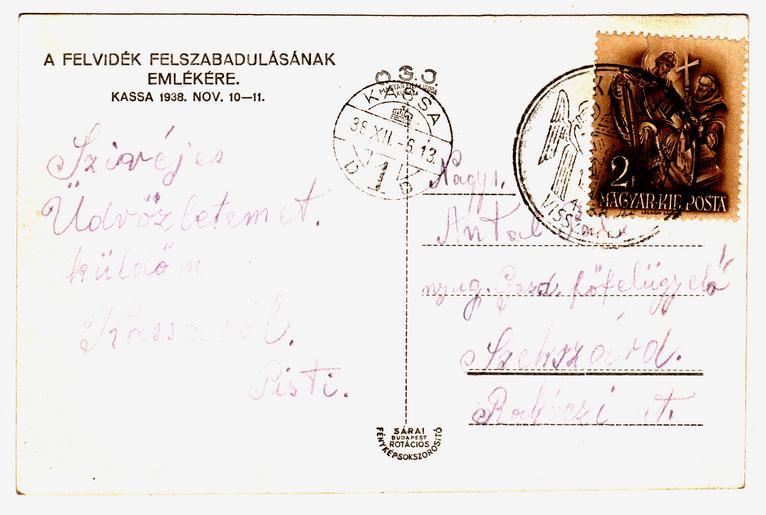 A FELVIDÉK FELSZABADULÁSÁNAK
EMLÉKÉRE.
KASSA 1938. NOV. 10—11.
Szivéjes
Üdvözletemet.
küldöm
Kassaról.
Pisti.
KASSA
38.XII.-6.13
1
2
MAGYAR·KIR·POSTA
Antal
nyug. Gazd. főfelügyelő
Szekszárd.
Rakóczi ut.
SÁRAI
BUDAPEST
ROTÁCIÓS
FÉNYKÉPSOKSZOROSITÓ